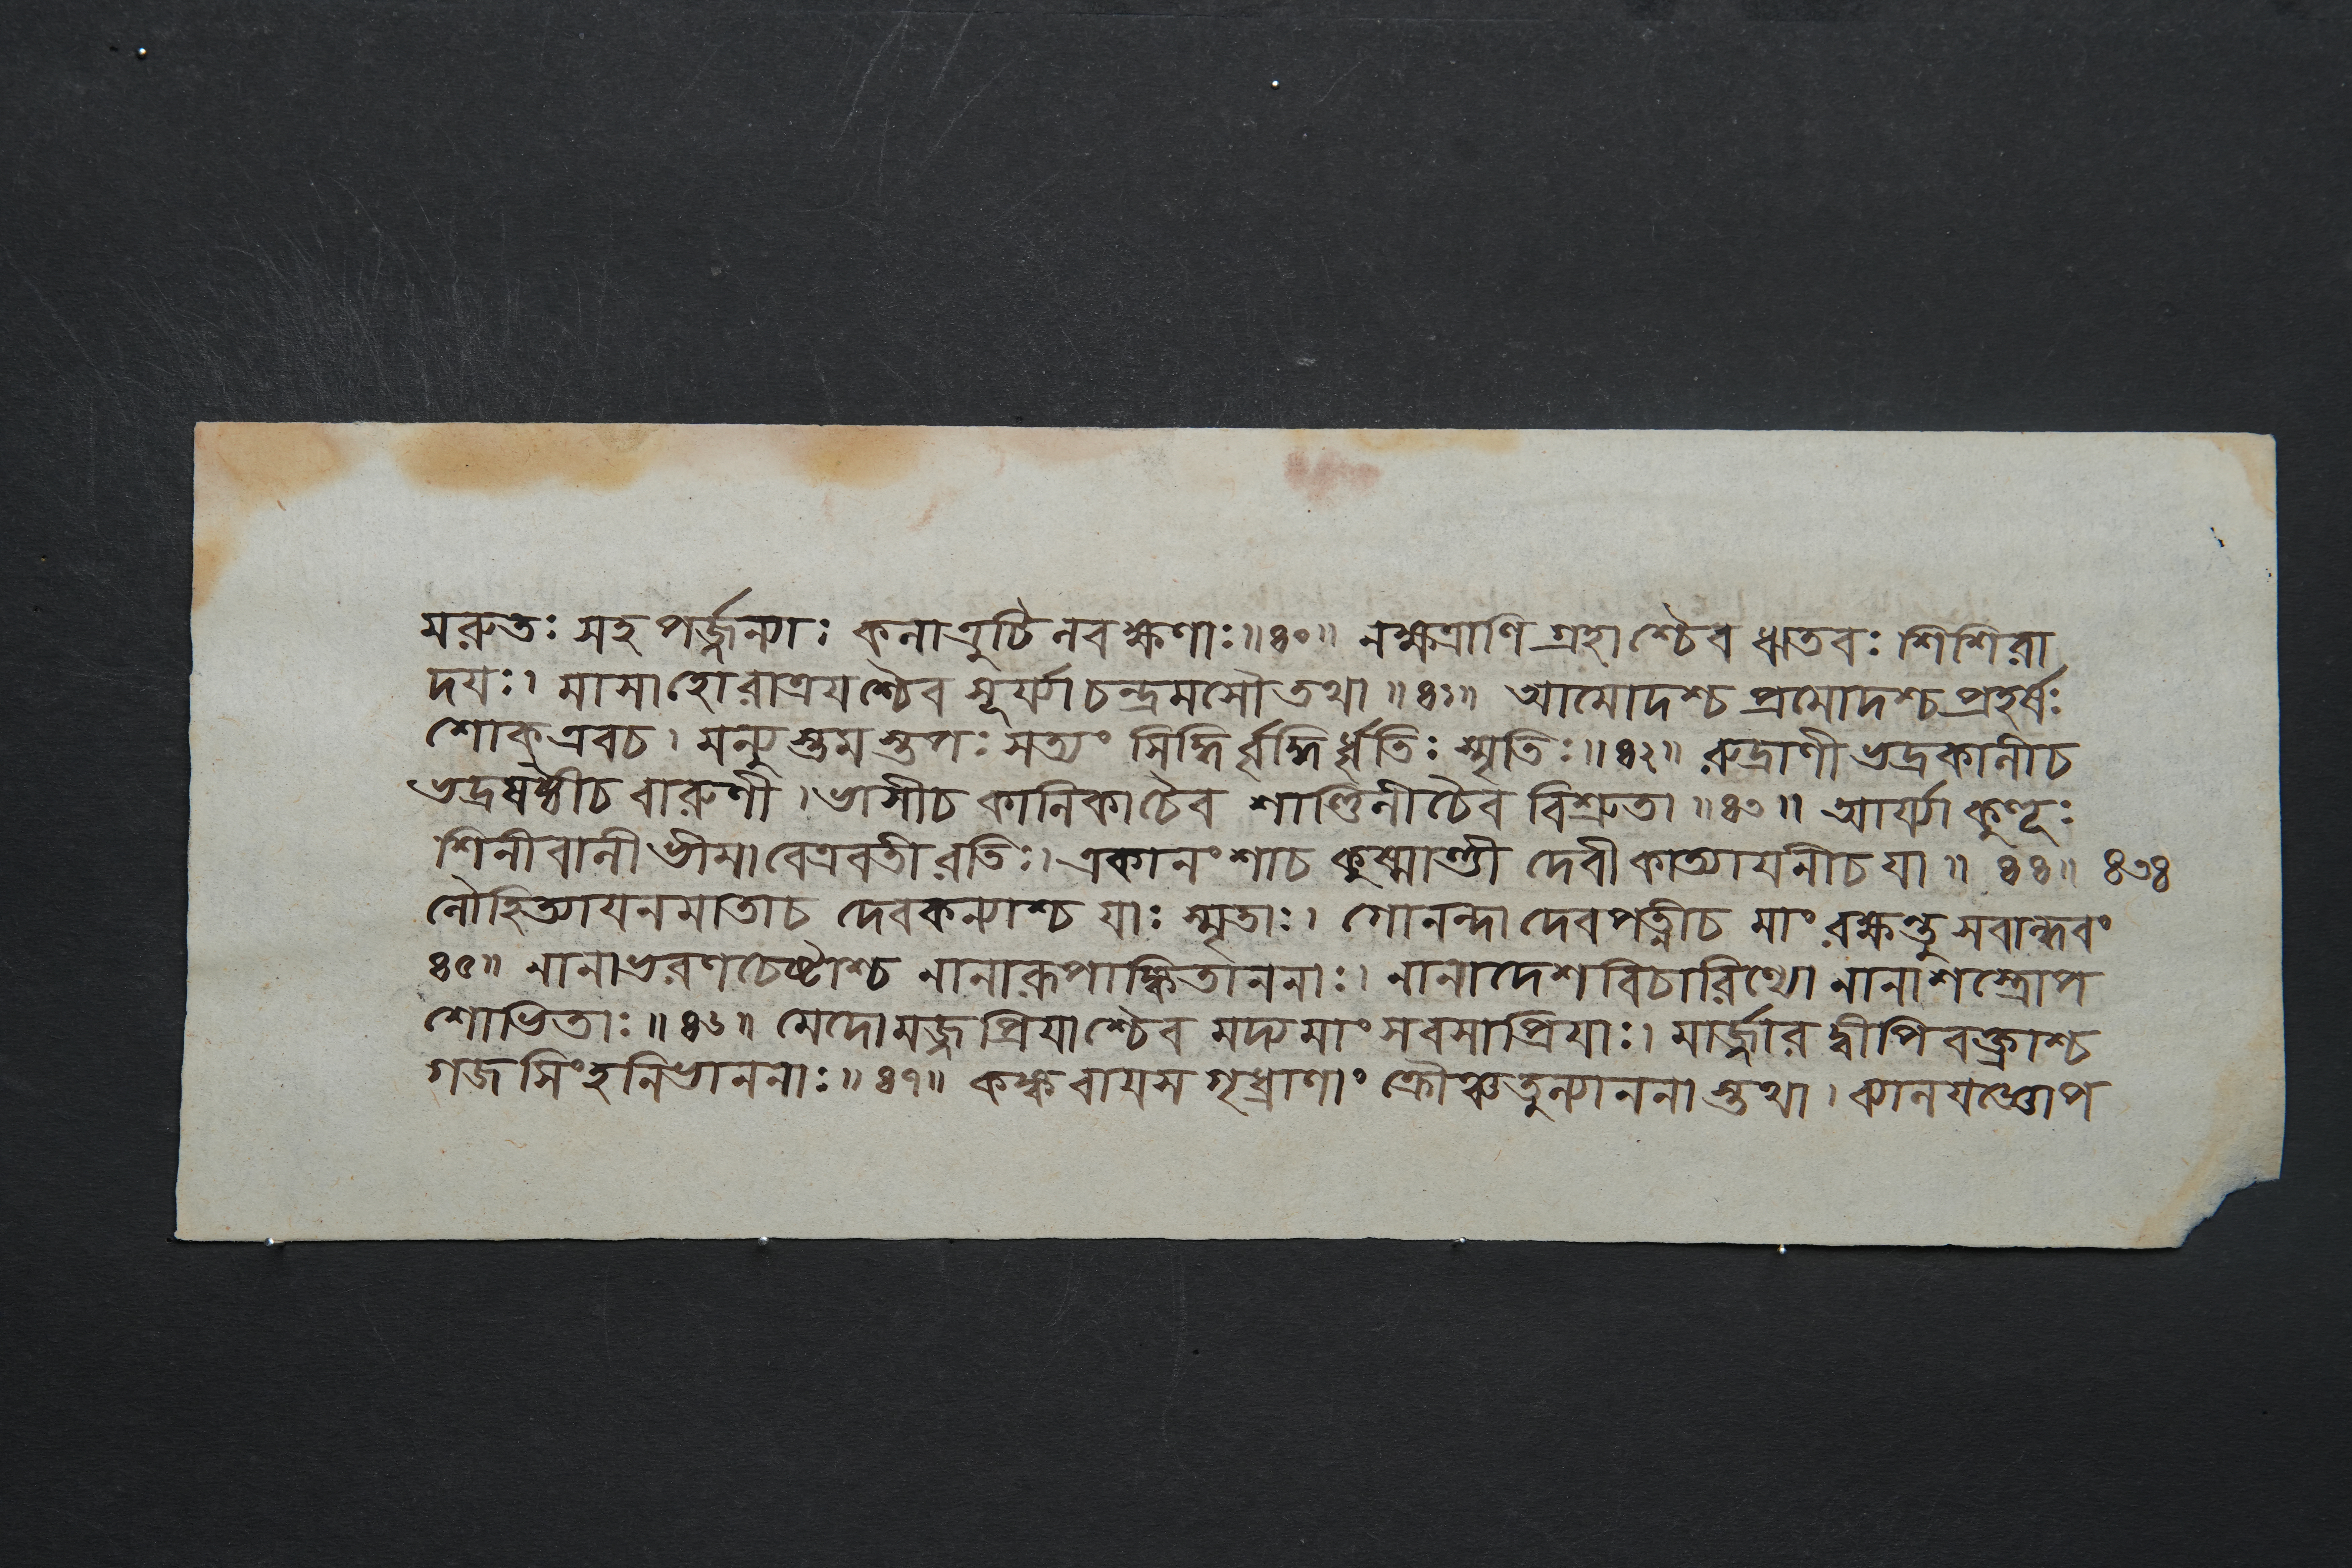 মরুতঃ সহ পর্জ্জন্যাঃ কলাত্রুটি লবক্ষণাঃ॥৪০॥ নক্ষত্রাণি গ্রহাশ্চৈব ঋতবঃ শিশিরা
দয়ঃ। মাসাহোরাত্রয়শ্চৈব সূর্য্যাচন্দ্রমসৌতথা॥৪১॥ আমোদশ্চ প্রমোদশ্চ প্রহর্ষঃ
শোক এবচ। মন্যুস্তমস্তপঃ সত্যং সিদ্ধির্বৃদ্ধির্ধৃতিঃ স্মৃতিঃ॥৪২॥ রুদ্রাণী ভদ্রকালীচ
ভদ্রষষ্ঠীচ বারুণী। ভাসীচ কালিকাচৈব শাণ্ডিলীচৈব বিশ্রুতা॥৪৩॥ আর্য্যা কুহূঃ
শিনীবালী ভীমা বেত্রবতী রতিঃ। একানংশাচ কুষ্মাণ্ডী দেবী কাত্যায়নীচ যা॥ ৪৪॥ ৪৩৪
লৌহিত্যায়নমাতাচ দেবকন্যাশ্চ যাঃ স্মৃতাঃ। গোনন্দা দেবপত্নীচ মাং রক্ষন্তু সবান্ধবং
৪৫॥ নানাভরণচেষ্টাশ্চ নানারূপাঙ্কিতাননাঃ। নানাদেশবিচারিণ্যো নানাশস্ত্রোপ
শোভিতাঃ॥৪৬॥ মেদোমজ্জপ্রিয়াশ্চৈব মদ্যমাংসবসাপ্রিয়াঃ। মার্জ্জার দ্বীপিবক্ত্রাশ্চ
গজসিংহনিভাননাঃ॥৪৭॥ কঙ্কবায়স গৃধ্রাণাং ক্রৌঞ্চতুল্যাননাস্তথা। ব্যালযজ্ঞোপ